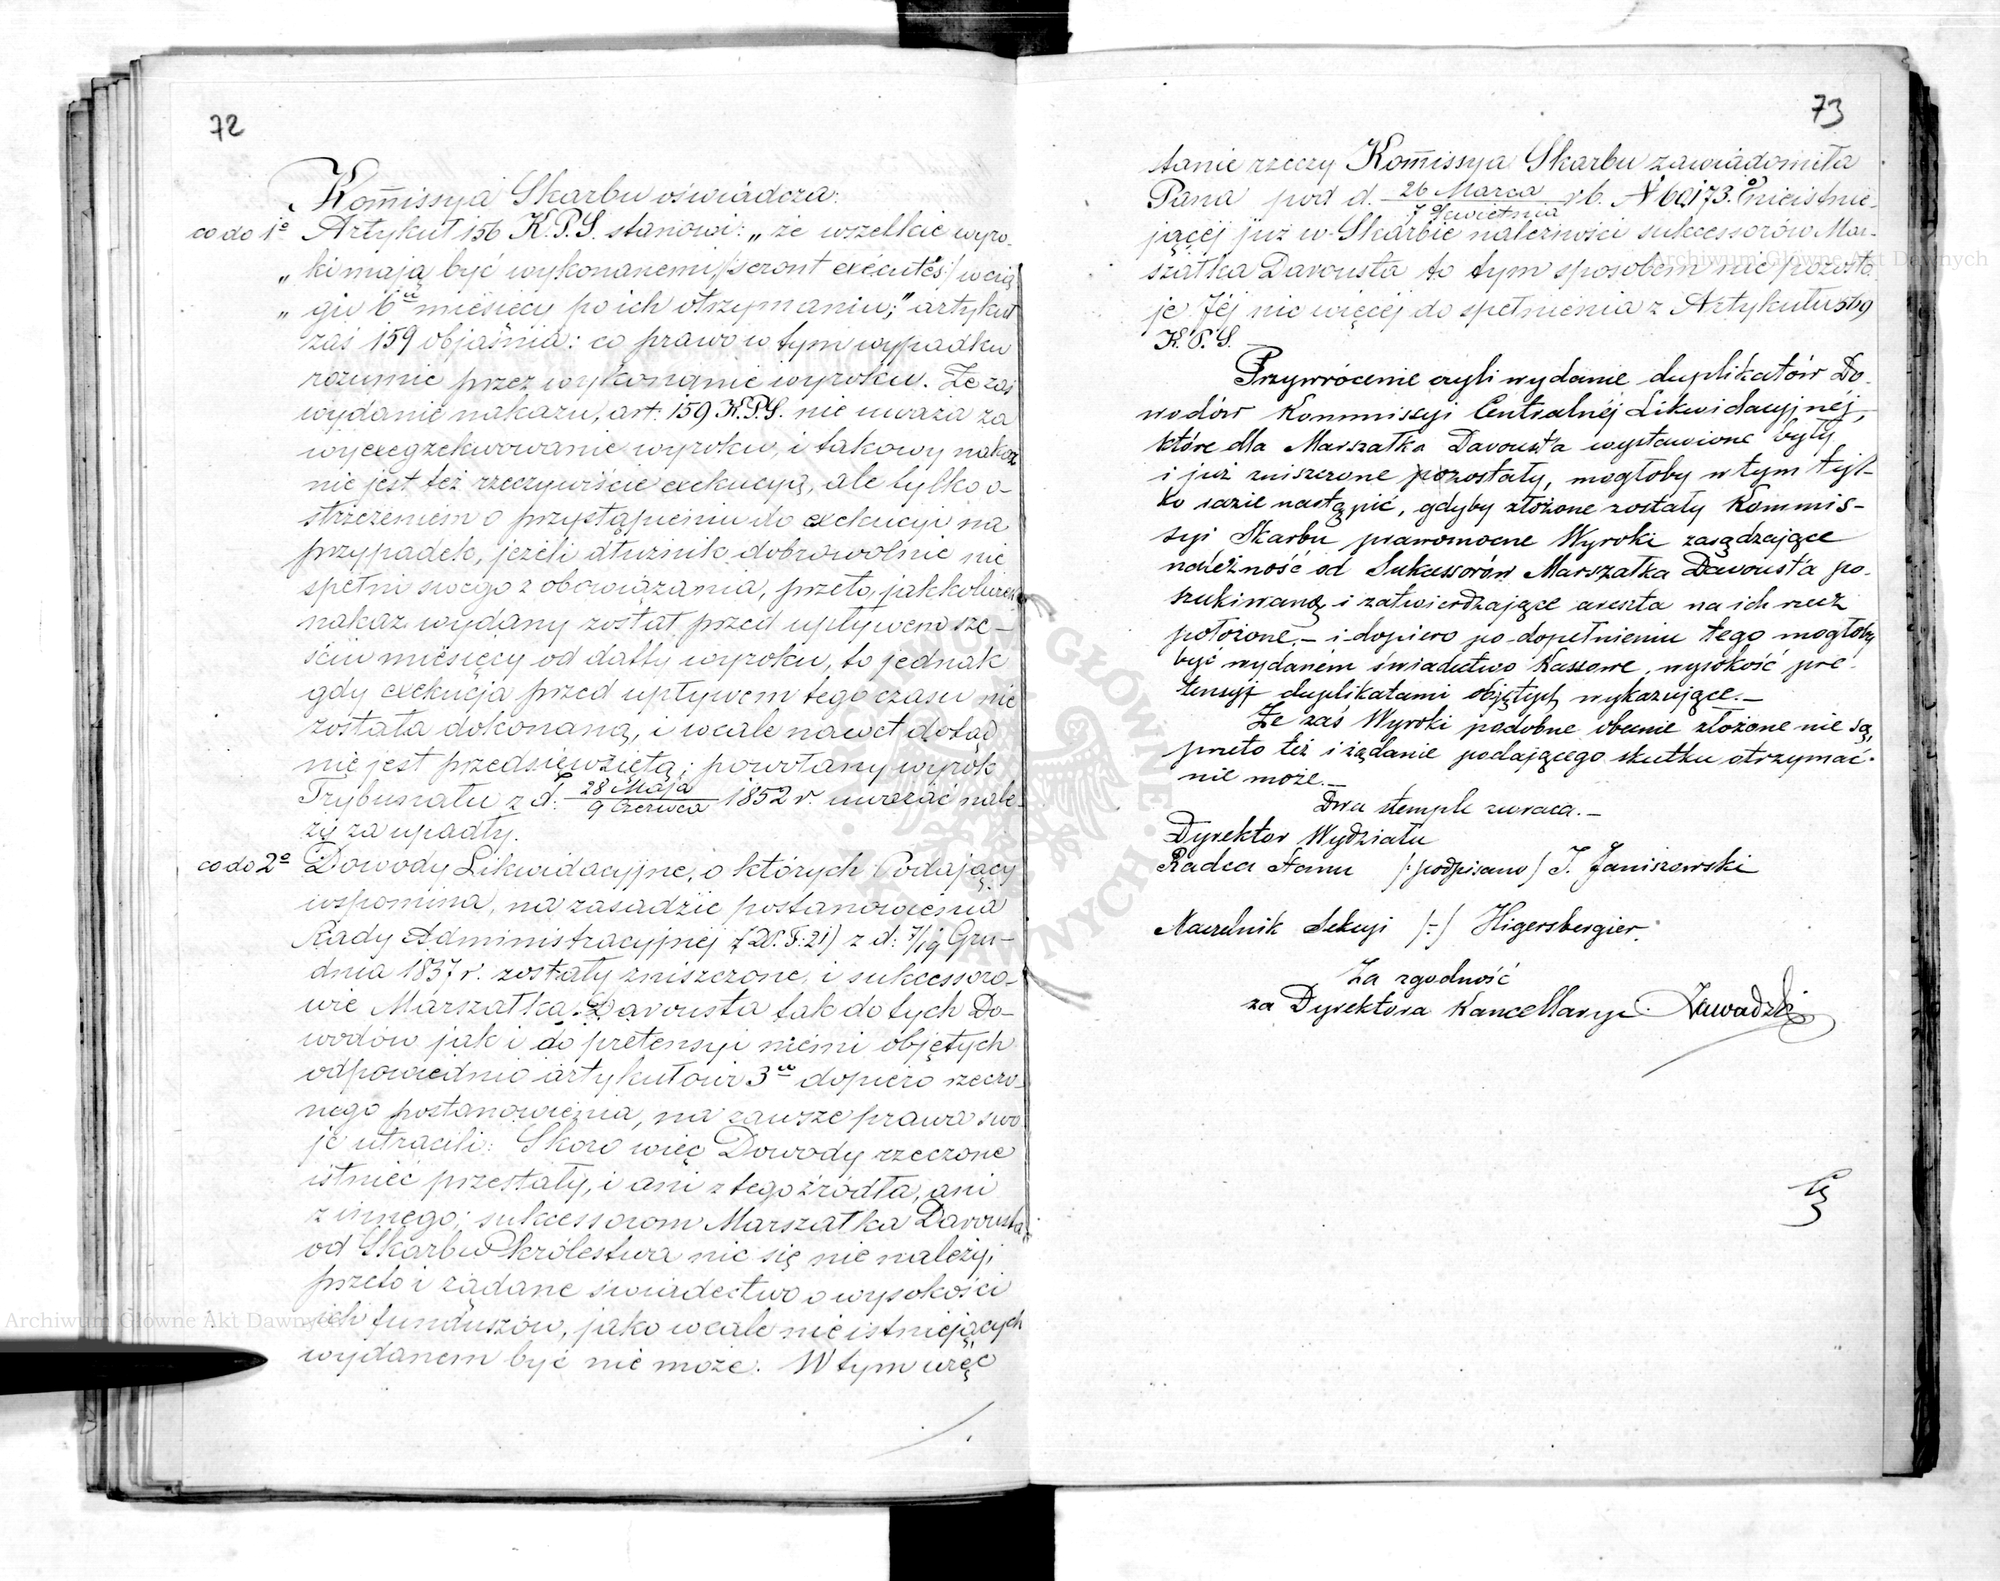 72
Kom̄issyja Skarbu oświadcza:
co do 1º Artykuł 156 K.P.S. stanowi: „że wszelkie wyro-
„ki mają być wykonanemi /:seront exécutés:/ w cią
„gu 6ciu miesięcy po ich otrzymaniu;" artykuł
zaś 159 objaśnia: co prawo w tym wypadku
rozumie przez wykonanie wyroku. Że zaś
wydanie nakazu, art. 159 K.P.S. nie uważa za
wyexegzekwowanie wyroku, i takowy nakaz
nie jest też rzeczywiście exekucyją, ale tylko o-
strzeżeniem o przystąpieniu do exekucyi na
przypadek, jeżeli dłużnik dobrowolnie nie
spełni swego zobowiązania, przeto, jakkolwiek
nakaz wydany został przed upływem sze-
ściu miesięcy od datty wyroku, to jednak
gdy exekucja przed upływem tego czasu nie
została dokonaną, i wcale nawet dotąd
nie jest przedsięwziętą; powołany wyrok
Trybunału z d. 28 Maja / 9 Czerwca 1852 r. uważać nale-
ży za upadły.
co do 2º Dowody Likwidacyjne, o których Podający
wspomina, na zasadzie postanowienia
Rady Administracyjnej (D.P.T:21) z d: 7/19 Gru-
dnia 1837 r. zostały zniszczone, i sukcessoro-
wie Marszałka Davousta tak do tych Do-
wodów jak i do pretensyi niemi objętych
odpowiednio artykułowi 3mu dopiero rzeczo-
nego postanowienia, na zawsze prawa swo
je utracili: Skoro więc Dowody rzeczone
istnieć przestały, i ani z tego źródła, ani
z innego; sukcessorom Marszałka Davousta
od Skarbu Królestwa nic się nie należy;
przeto i żądane świadectwo o wysokości
ich funduszów, jako wcale nie istniejących
wydanem być nie może. W tym więc
73
stanie rzeczy Kom̄issya Skarbu zawiadomiła
Pana pod d. 26 Marca / 7 Kwietnia r b. N 60,173. o nieistnie-
jącej już w Skarbie należności sukcessorów Mar-
szałka Davousta to tym sposobem nie pozosta
je Jej nic więcej do spełnienia z Artykułu 569
K. P. S.
Przywrócenie czyli wydanie duplikatów Do-
wodów Kommissyi Centralnéj Likwidacyjnéj,
które dla Marszałka Davousta wystawione były
i już zniszczone pozostały, mogłoby w tym tyl-
ko razie nastąpić, gdyby złożone zostały Kommis-
syi Skarbu prawomocne Wyroki zasądzające
należność od Sukcessorów Marszałka Davousta po-
szukiwaną i zatwierdzające areszta na ich rzecz
położone.– i dopiero po dopełnieniu tego mogłoby
być wydaném świadectwo Kassowe, wysokość pre-
tensyi duplikatami objętych wykazujące.–
Że zaś Wyroki podobne obecnie złożone nie są,
przeto też i żądanie podającego skutku otrzymać
nie może.–
Dwa stemple zwraca.–
Dyrektor Wydziału
Radca Stanu /:podpisano/ J. Janiszewski
Naczelnik Sekcyi /:-/ Higersbergier.
Za zgodność
za Dyrektora Kancellaryi. Zawadzki
Archiwum Główne Akt Dawnych
Archiwum Główne Akt Dawnych